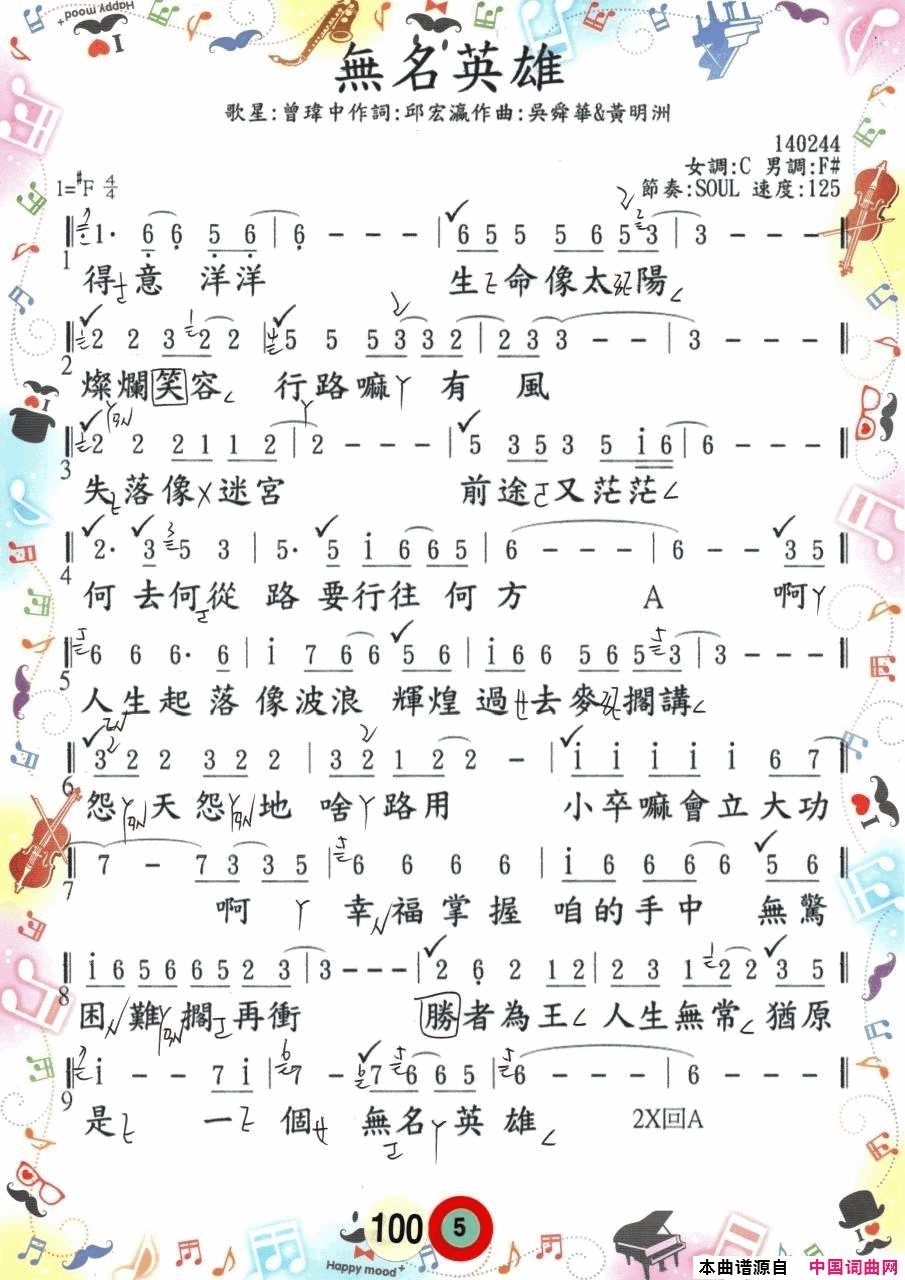 Happy mood+
I
無名英雄
歌星:曾瑋中作詞:邱宏瀛作曲:吳舜華&黃明洲
140244
女調:C 男調:F#
1=#F 4/4 節奏:SOUL 速度:125
1· 6 6 5 6 | 6 - - - | 6 5 5 5 6 5 3 | 3 - - -
1 得意 洋洋 生命像太陽
2 2 3 2 2 | 5 5 5 5 3 3 2 | 2 3 3 - - | 3 - - -
2 燦爛笑容 行路嘛 有 風
2 2 2 1 1 2 | 2 - - - | 5 3 5 3 5 i 6 | 6 - - -
3 失落像迷宮 前途又茫茫
2· 3 5 3 | 5· 5 i 6 6 5 | 6 - - - | 6 - - 3 5
4 何去何從 路要行往何方 A 啊
6 6 6· 6 | i 7 6 6 5 6 | i 6 6 5 6 5 3 | 3 - - -
5 人生起落像波浪 輝煌過去麥擱講
3 2 2 3 2 2 | 3 2 1 2 2 - | i i i i i 6 7
6 怨天怨地 啥路用 小卒嘛會立大功
7 - 7 3 3 5 | 6 6 6 6 | i 6 6 6 6 5 6
7 啊 幸福掌握 咱的手中 無驚
i 6 5 6 6 5 2 3 | 3 - - - | 2 6 2 1 2 | 2 3 1 2 2 3 5
8 困難擱再衝 勝者為王 人生無常 猶原
i - - 7 i | 7 - - 7 6 6 5 | 6 - - - | 6 - - -
9 是 一個 無名英雄 2X回A
100 5
Happy mood+
本曲谱源自 中国词曲网